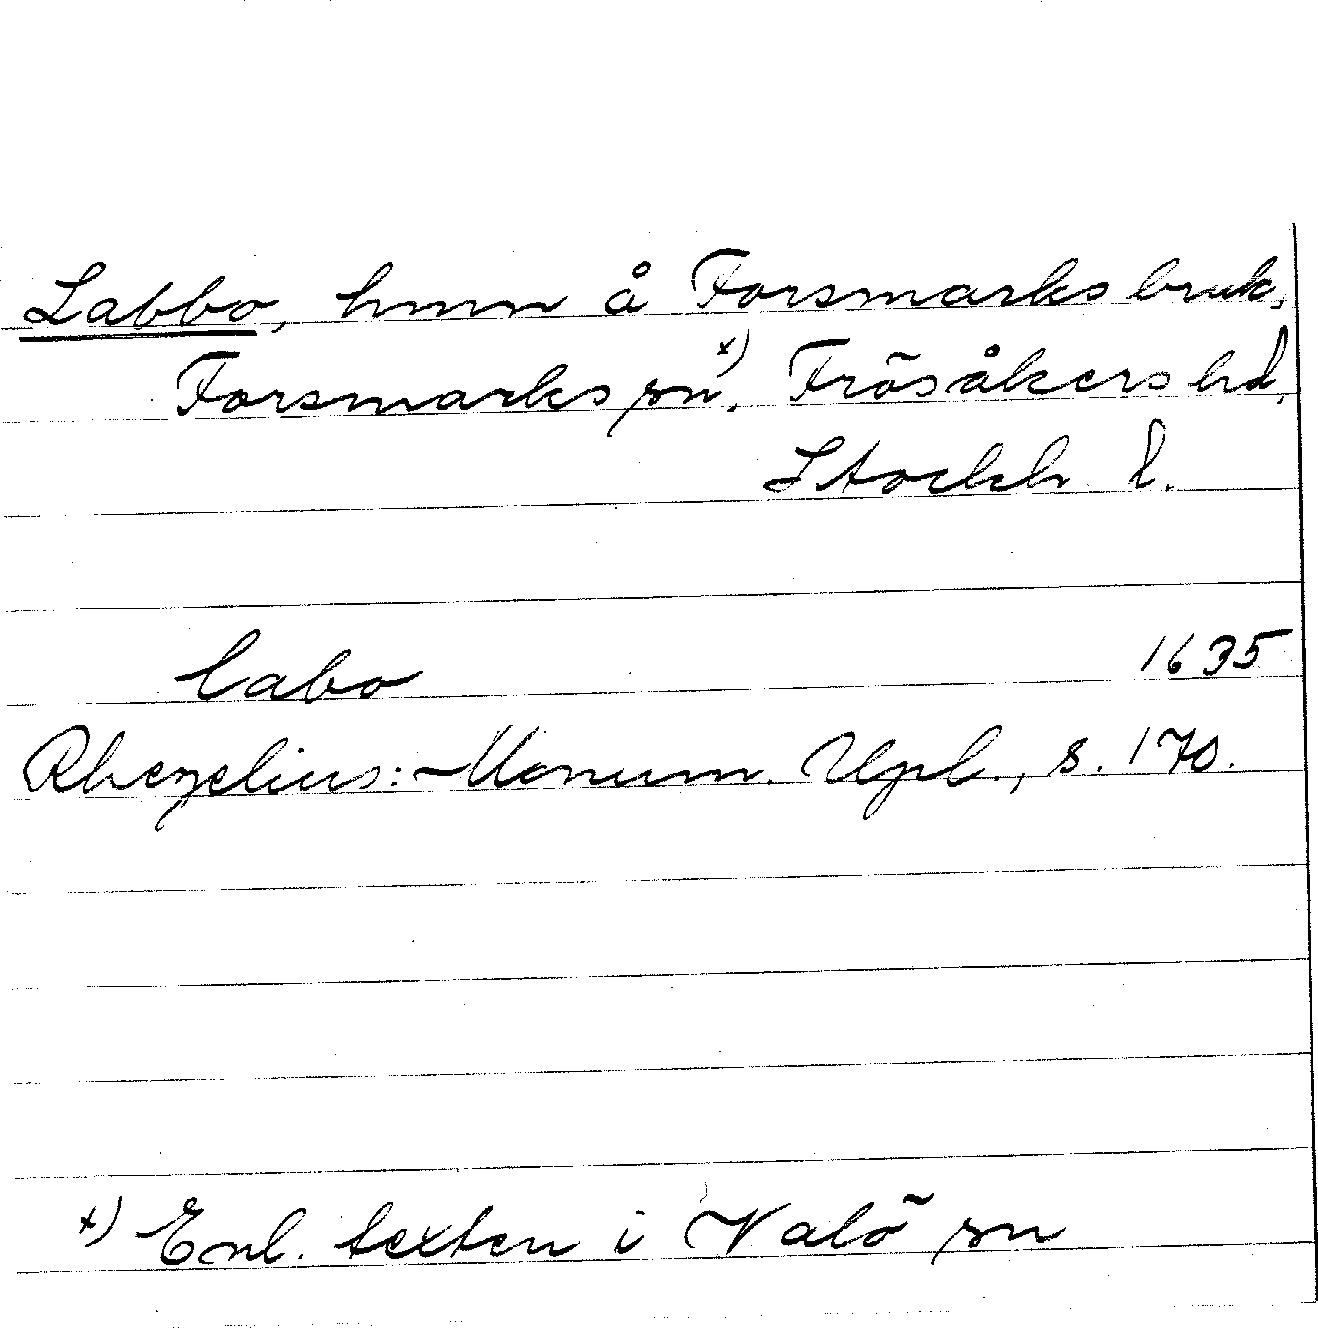 Labbo, hmn å Forsmarks bruk,
Forsmarks sn x), Frösåkers hd,
Stockh l.
Labo 1635
Rhezelius: Monum. Upl., s. 170.
x) Enl. texten i Valö sn